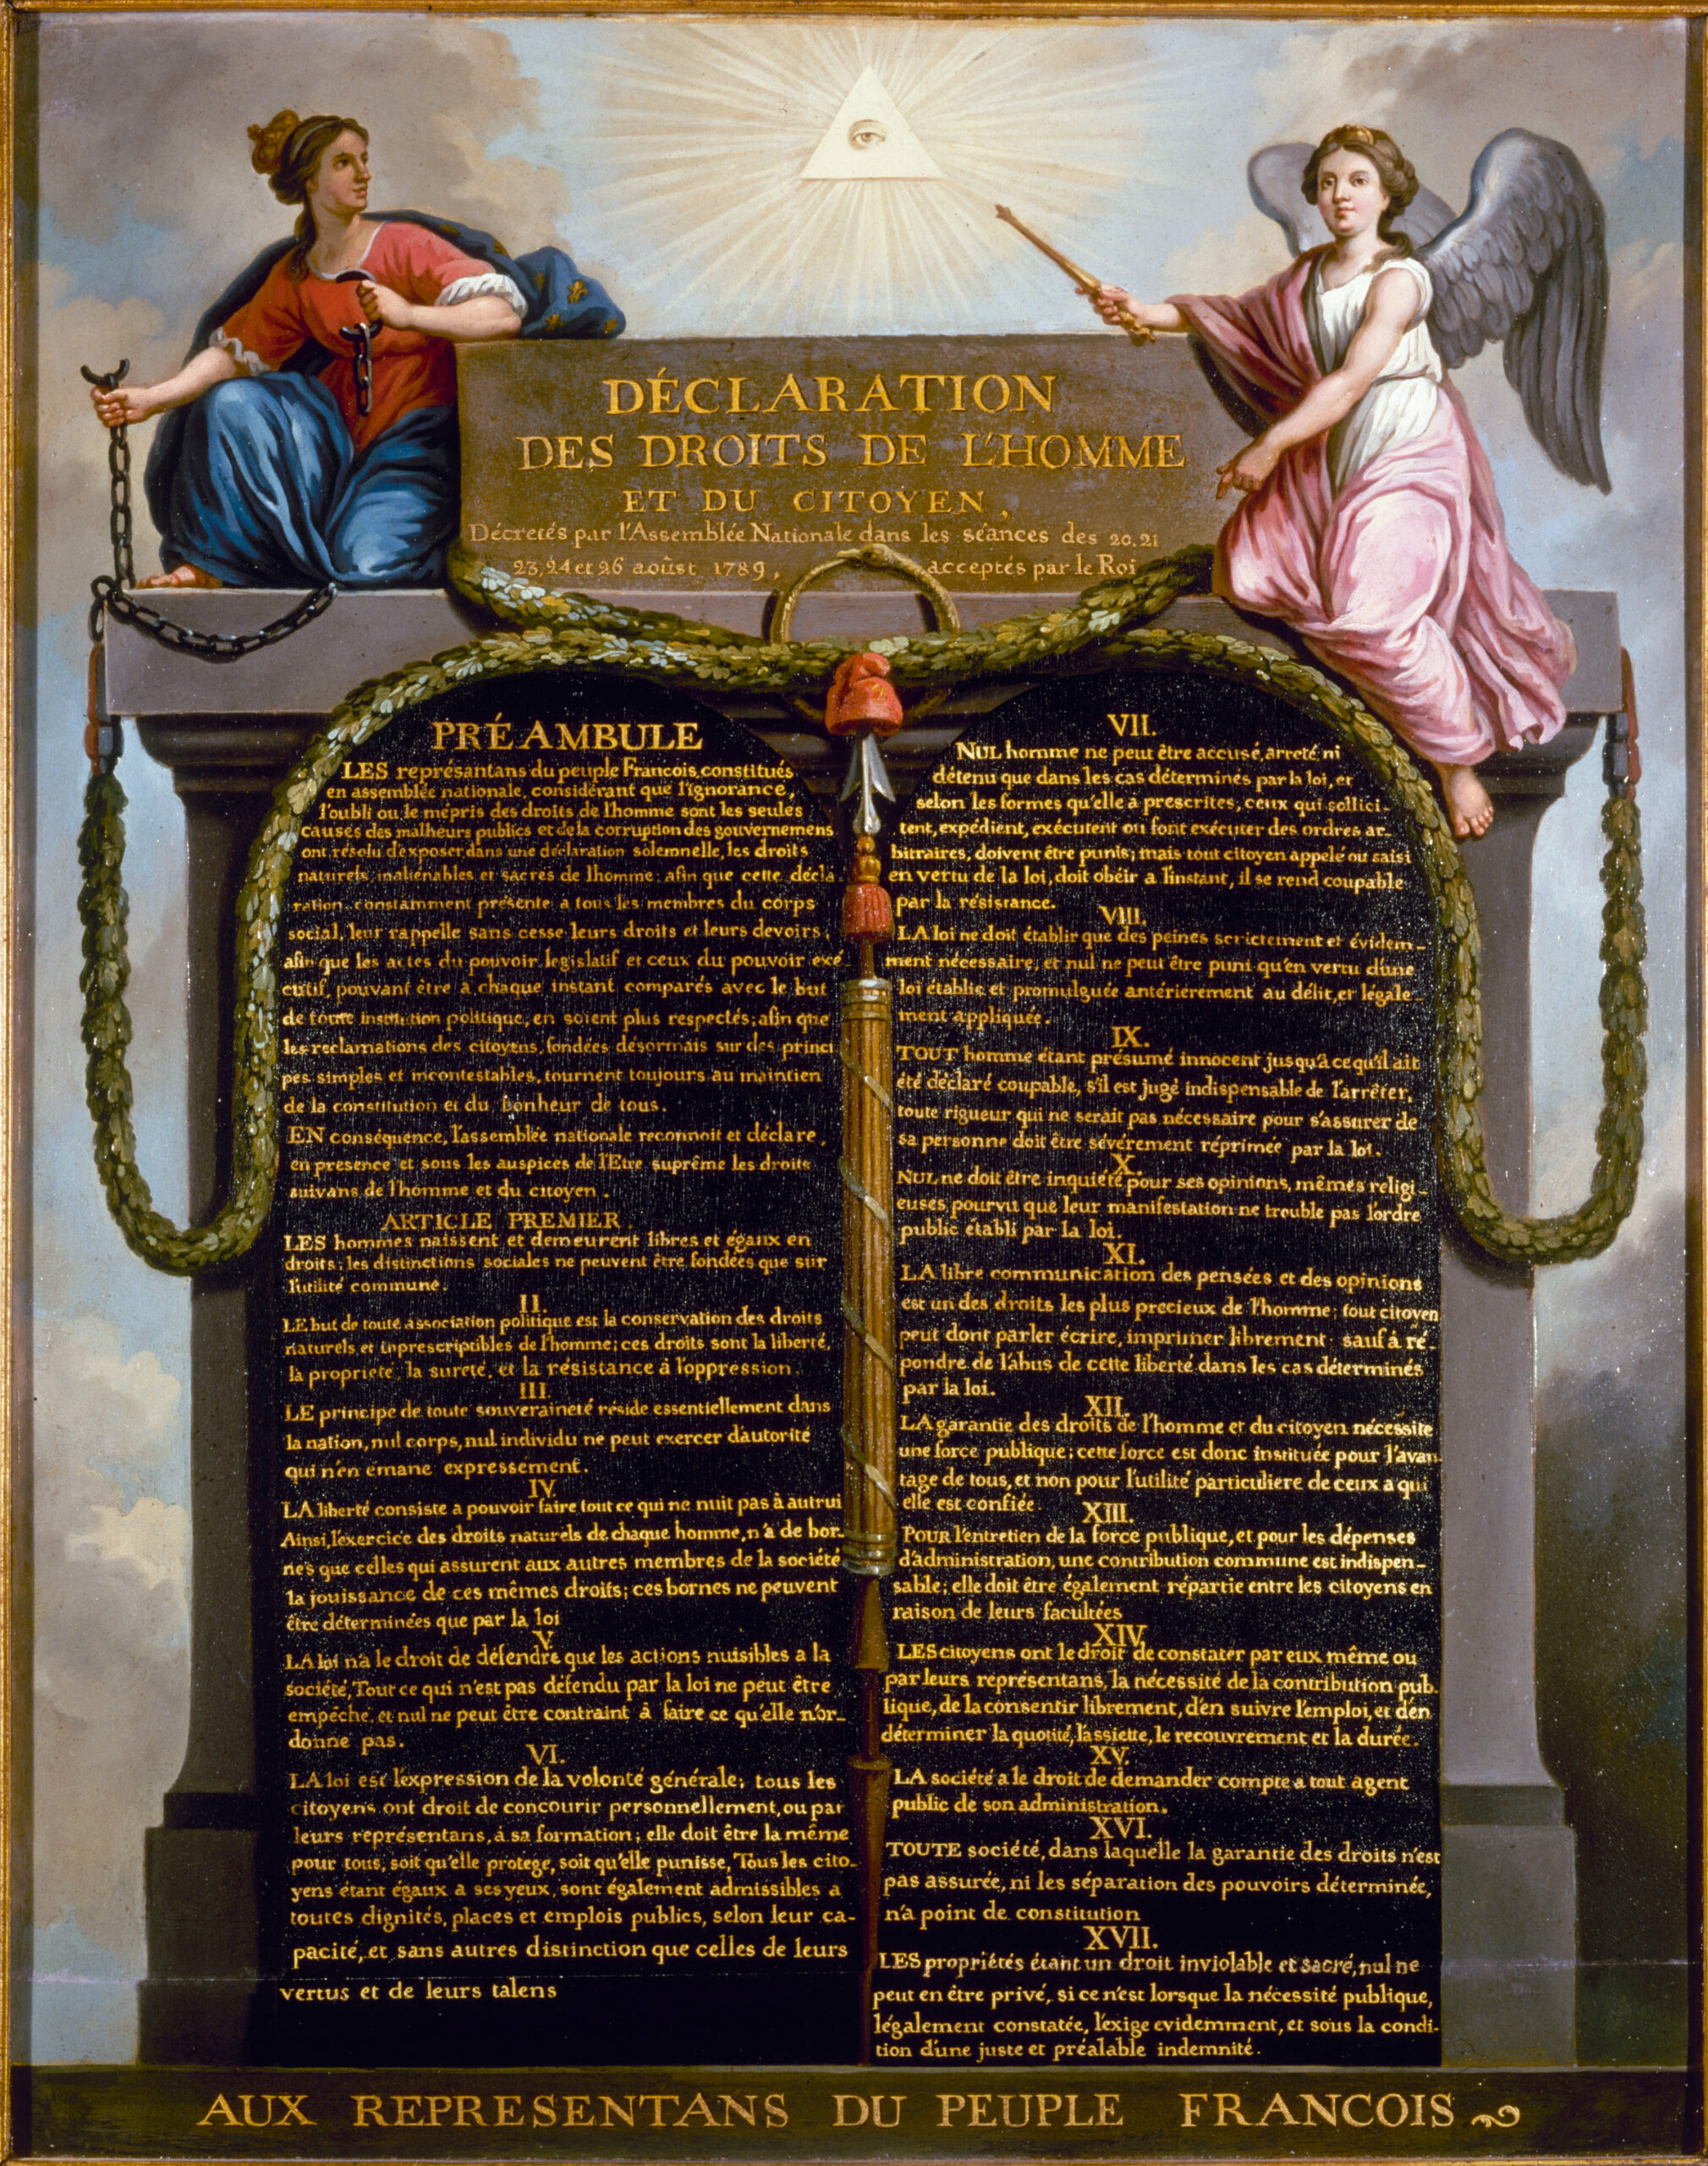 DÉCLARATION
DES DROITS DE L'HOMME
ET DU CITOYEN,
Décretés par l'Assemblée Nationale dans les séances des 20, 21
23, 24 et 26 aoûst 1789, acceptés par le Roi
PRÉAMBULE
LES représantans du peuple Francois, constitués
en assemblée nationale, considérant que l'ignorance,
l'oubli ou le mépris des droits de l'homme sont les seules
causes des malheurs publics et de la corruption des gouvernemens
ont résolu d'exposer dans une déclaration solemnelle, les droits
naturels, inaliénables et sacrés de l'homme; afin que cette décla-
ration constamment présente a tous les membres du corps
social, leur rappelle sans cesse leurs droits et leurs devoirs,
afin que les actes du pouvoir legislatif et ceux du pouvoir exé-
cutif, pouvant être à chaque instant comparés avec le but
de toute institution politique, en soient plus respectés; afin que
les reclamations des citoyens, fondées désormais sur des princi
pes simples et incontestables, tournent toujours au maintien
de la constitution et du bonheur de tous.
EN conséquence, l'assemblée nationale reconnoit et déclare,
en presence et sous les auspices de l'Etre suprême les droits
suivans de l'homme et du citoyen.
ARTICLE PREMIER.
LES hommes naissent et demeurent libres et égaux en
droits; les distinctions sociales ne peuvent être fondées que sur
l'utilité commune.
II.
LE but de toute association politique est la conservation des droits
naturels et inprescriptibles de l'homme; ces droits sont la liberté,
la propriete, la sureté, et la résistance à l'oppression.
III.
LE principe de toute souveraineté réside essentiellement dans
la nation, nul corps, nul individu ne peut exercer d'autorité
qui n'en émane expressément.
IV.
LA liberté consiste a pouvoir faire tout ce qui ne nuit pas à autrui
Ainsi, l'exercice des droits naturels de chaque homme, n'a de bor-
nes que celles qui assurent aux autres membres de la société
la jouissance de ces mêmes droits; ces bornes ne peuvent
être déterminées que par la loi
V.
LA loi n'a le droit de défendre que les actions nuisibles a la
société, Tout ce qui n'est pas défendu par la loi ne peut être
empêché, et nul ne peut être contraint à faire ce qu'elle n'or-
donne pas.
VI.
LA loi est l'expression de la volonté générale; tous les
citoyens ont droit de concourir personnellement, ou par
leurs représentans, à sa formation; elle doit être la même
pour tous, soit qu'elle protege, soit qu'elle punisse, Tous les cito-
yens étant égaux a ses yeux, sont également admissibles a
toutes dignités, places et emplois publics, selon leur ca-
pacité, et sans autres distinction que celles de leurs
vertus et de leurs talens
VII.
NUL homme ne peut être accusé, arreté, ni
détenu que dans les cas déterminés par la loi, et
selon les formes qu'elle à prescrites, ceux qui sollici-
tent, expédient, exécutent ou font exécuter des ordres ar-
bitraires, doivent être punis; mais tout citoyen appelé ou saisi
en vertu de la loi, doit obéir a l'instant, il se rend coupable
par la résistance.
VIII.
LA loi ne doit établir que des peines strictement et évidem-
ment nécessaire; et nul ne peut être puni qu'en vertu d'une
loi établie et promulguée antérierement au délit, et légale-
ment appliquée.
IX.
TOUT homme étant présumé innocent jusqu'à ce qu'il ait
été déclaré coupable, s'il est jugé indispensable de l'arrêter,
toute rigueur qui ne serait pas nécessaire pour s'assurer de
sa personne doit être sévérement réprimée par la loi.
X.
NUL ne doit être inquiété pour ses opinions, mêmes religi-
euses pourvu que leur manifestation ne trouble pas l'ordre
public établi par la loi.
XI.
LA libre communication des pensées et des opinions
est un des droits les plus precieux de l'homme; tout citoyen
peut dont parler écrire, imprimer librement: sauf à ré-
pondre de l'abus de cette liberté dans les cas déterminés
par la loi.
XII.
LA garantie des droits de l'homme et du citoyen nécessite
une force publique; cette force est donc instituée pour l'avan-
tage de tous, et non pour l'utilité particuliere de ceux a qui
elle est confiée.
XIII.
POUR l'entretien de la force publique, et pour les dépenses
d'administration, une contribution commune est indispen-
sable; elle doit être également répartie entre les citoyens en
raison de leurs facultées
XIV.
LES citoyens ont le droit de constater par eux même ou
par leurs représentans, la nécessité de la contribution pub-
lique, de la consentir librement, d'en suivre l'emploi, et d'en
déterminer la quotité, l'assiette, le recouvrement et la durée.
XV.
LA société a le droit de demander compte a tout agent
public de son administration.
XVI.
TOUTE société, dans laquelle la garantie des droits n'est
pas assurée, ni les séparation des pouvoirs déterminée,
n'a point de constitution
XVII.
LES propriétés étant un droit inviolable et sacré, nul ne
peut en être privé, si ce n'est lorsque la nécessité publique,
légalement constatée, l'exige evidemment, et sous la condi-
tion d'une juste et préalable indemnité.
AUX REPRESENTANS DU PEUPLE FRANCOIS